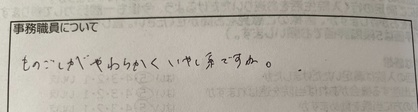 事務職員について
ものごしがやわらかく いやし系ですか。